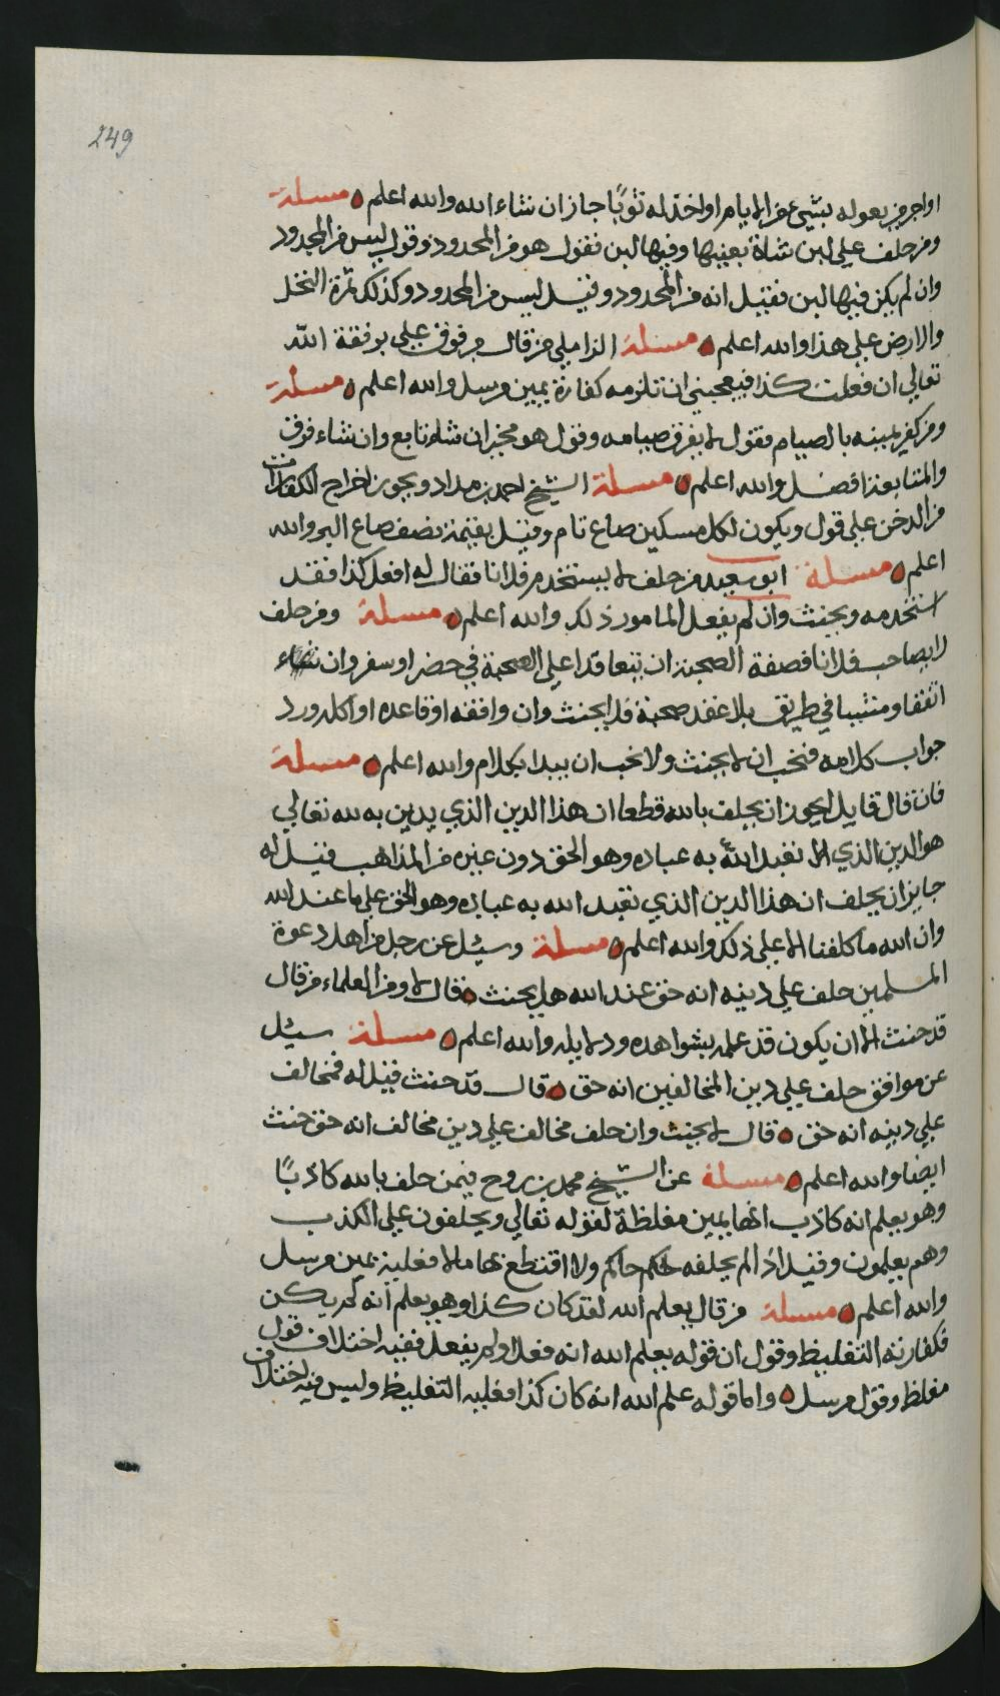 249
او اجر من يعوله بشيء من الايام او اخذ له ثوبًا جاز ان شاء الله والله اعلم مسلة
ومن حلف على لبن شاة بعينها وفيها لبن فقول هو من المحدود وقول ليس من المحدود
وان لم يكن فيها لبن فقيل انه من المحدود وقيل ليس من المحدود وكذلك ثمرة النخل
والارض على هذا والله اعلم مسلة الزاملي من قال مرفوق علي برفقة الله
تعالى ان فعلت كذا فيعجبني ان تلزمه كفارة يمين مرسل والله اعلم مسلة
ومن كفر يمينه بالصيام فقول لا يفرق صيامه وقول هو مخير ان شاء تابع وان شاء فرق
والمتابعة افضل والله اعلم مسلة الشيخ احمد بن مداد ويجوز اخراج الكفارات
من الدخن على قول ويكون لكل مسكين صاع تام وقيل بقيمة نصف صاع البر والله
اعلم مسلة ابو سعيد من حلف لا يستخدم فلانا فقال له افعل كذا فقد
استخدمه ويحنث وان لم يفعل المامور ذلك والله اعلم مسلة ومن حلف
لا يصاحب فلانا فصفة الصحبة ان يتعاقدا على الصحبة في حضر او سفر وان
اتفقا ومشيا في طريق بلا عقد صحبة فلا يحنث وان وافقه او قاعده او اكله ورد
جواب كلامه فنحب ان لا يحنث ولا نحب ان يبدا بكلام والله اعلم مسلة
فان قال قايل ايجوز ان يحلف بالله قطعا ان هذا الدين الذي يدين به لله تعالى
هو الدين الذي تعبد الله به عباده وهو الحق دون غيره من المذاهب قيل له
جايز ان يحلف ان هذا الدين الذي تعبد الله به عباده وهو الحق على ما عند الله
وان الله ما كلفنا الا على ذلك والله اعلم مسلة وسئل عن رجل من اهل دعوة
المسلمين حلف على دينه انه حق عند الله هل يحنث قال لا ومن العلماء من قال
قد حنث الا ان يكون قد علمه بشواهده ودلايله والله اعلم مسلة سئل
عن موافق حلف على دين المخالفين انه حق قال قد حنث قيل له فمخالف
على دينه انه حق قال لا يحنث وان حلف مخالف على دين مخالف انه حق حنث
ايضا والله اعلم مسلة عن الشيخ محمد بن روح فيمن حلف بالله كاذبًا
وهو يعلم انه كاذب انها يمين مغلظة لقوله تعالى ويحلفون على الكذب
وهم يعلمون وقيل اذا لم يحلفه حاكم ولا اقتطع بها مالا فعليه يمين مرسل
والله اعلم مسلة من قال يعلم الله لقد كان كذا وهو يعلم انه لم يكن
فكفارته التغليظ وقول ان قوله يعلم الله انه فعل او لم يفعل ففيه اختلاف قول
مغلظ وقول مرسل واما قوله علم الله انه كان كذا فعليه التغليظ وليس فيه اختلاف